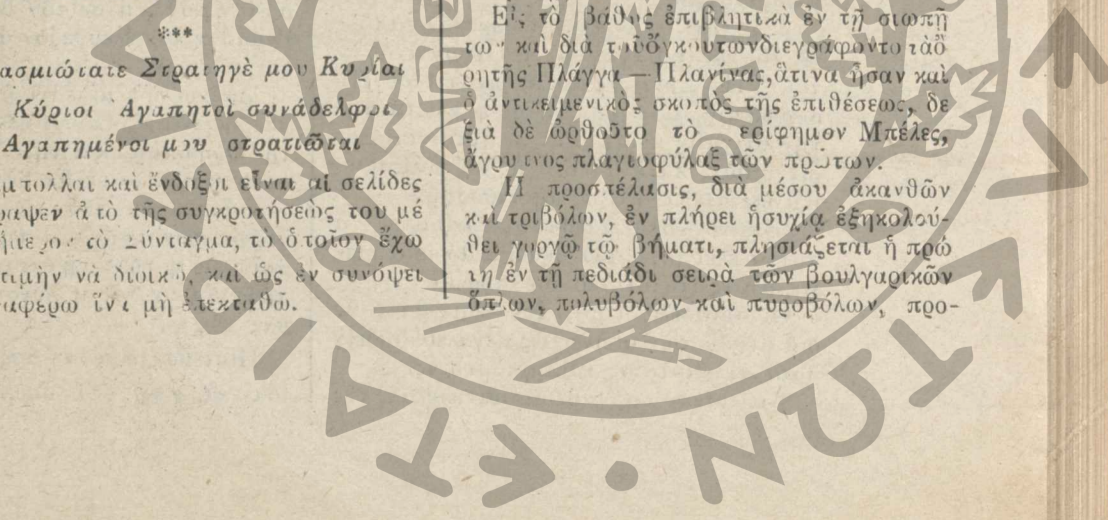 ***
ασμιώτατε Στρατηγέ μου Κυρίαι
Κύριοι Ἀγαπητοὶ συνάδελφοι
Ἀγαπημένοι μου στρατιῶται
καὶ ἔνδοξοι εἶναι αἱ σελίδες
ραψεν ἀπὸ τῆς συγκροτήσεώς του μέ
τὸ Σύνταγμα, τὸ ὁποῖον ἔχω
τιμὴν νὰ διοικῶ, καὶ ὡς ἐν συνόψει
αφέρω ἵνα μὴ ἐπεκταθῶ.
Εἰς τὸ βάθος ἐπιβλητικὰ ἐν τῇ σιωπῇ
των καὶ διὰ τοῦ ὄγκου των διεγράφοντο τὰ ὂ
ρητῆς Πλάγγα — Πλανίνας, ἅτινα ἦσαν καὶ
ὁ ἀντικειμενικὸς σκοπὸς τῆς ἐπιθέσεως, δε
ξιὰ δὲ ὠρθοῦτο τὸ ερίφημον Μπέλες,
ἄγρυπνος πλαγιοφύλαξ τῶν πρώτων.
Ἡ προσπέλασις, διὰ μέσου ἀκανθῶν
καὶ τριβόλων, ἐν πλήρει ἡσυχίᾳ ἐξηκολού-
θει γοργῷ τῷ βήματι, πλησιάζεται ἡ πρώ
τη ἐν τῇ πεδιάδι σειρὰ τῶν βουλγαρικῶν
ὅπλων, πολυβόλων καὶ πυροβόλων, προ-